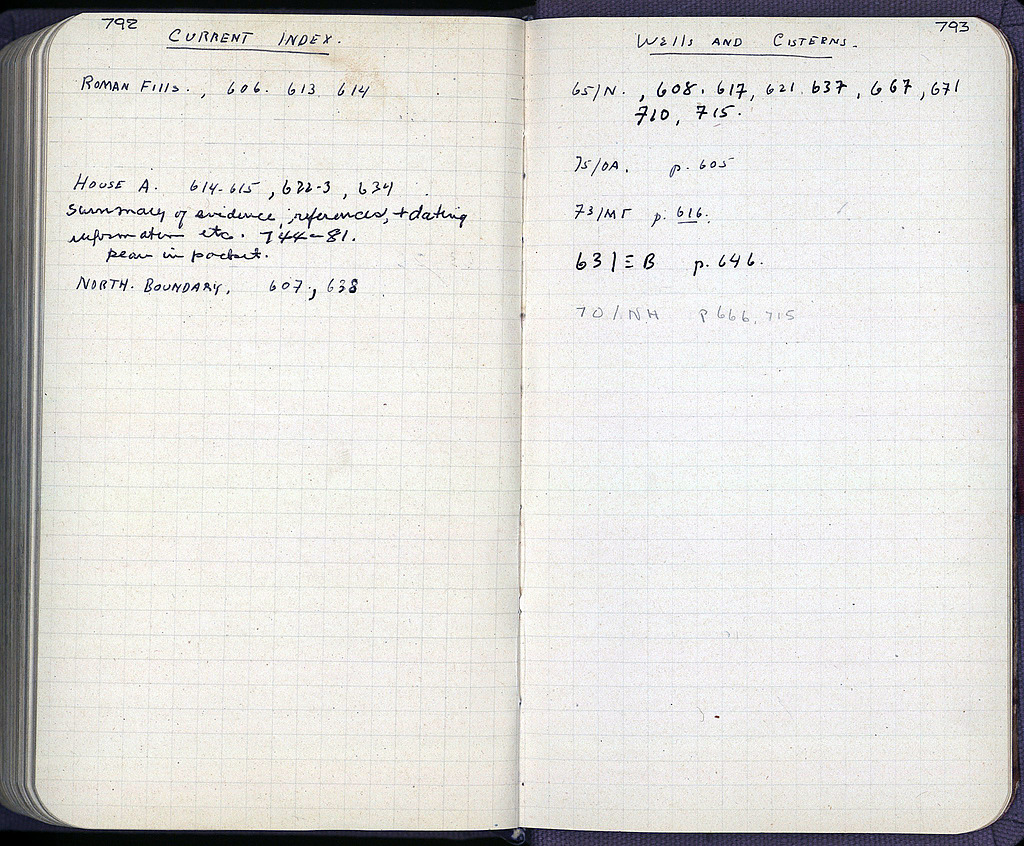 792
CURRENT INDEX.
ROMAN FILLS., 606. 613. 614
HOUSE A. 614-615, 622-3, 634
Summary of evidence, references, + dating
information etc. 744-81.
in pocket.
NORTH. BOUNDARY. 607., 638
793
WELLS AND CISTERNS.
65/N. , 608. 617, 621. 637, 667, 671
710, 715.
75/OA. p. 605
73/MT p. 616.
631 ≡ B p. 646.
70/NH p 666, 715